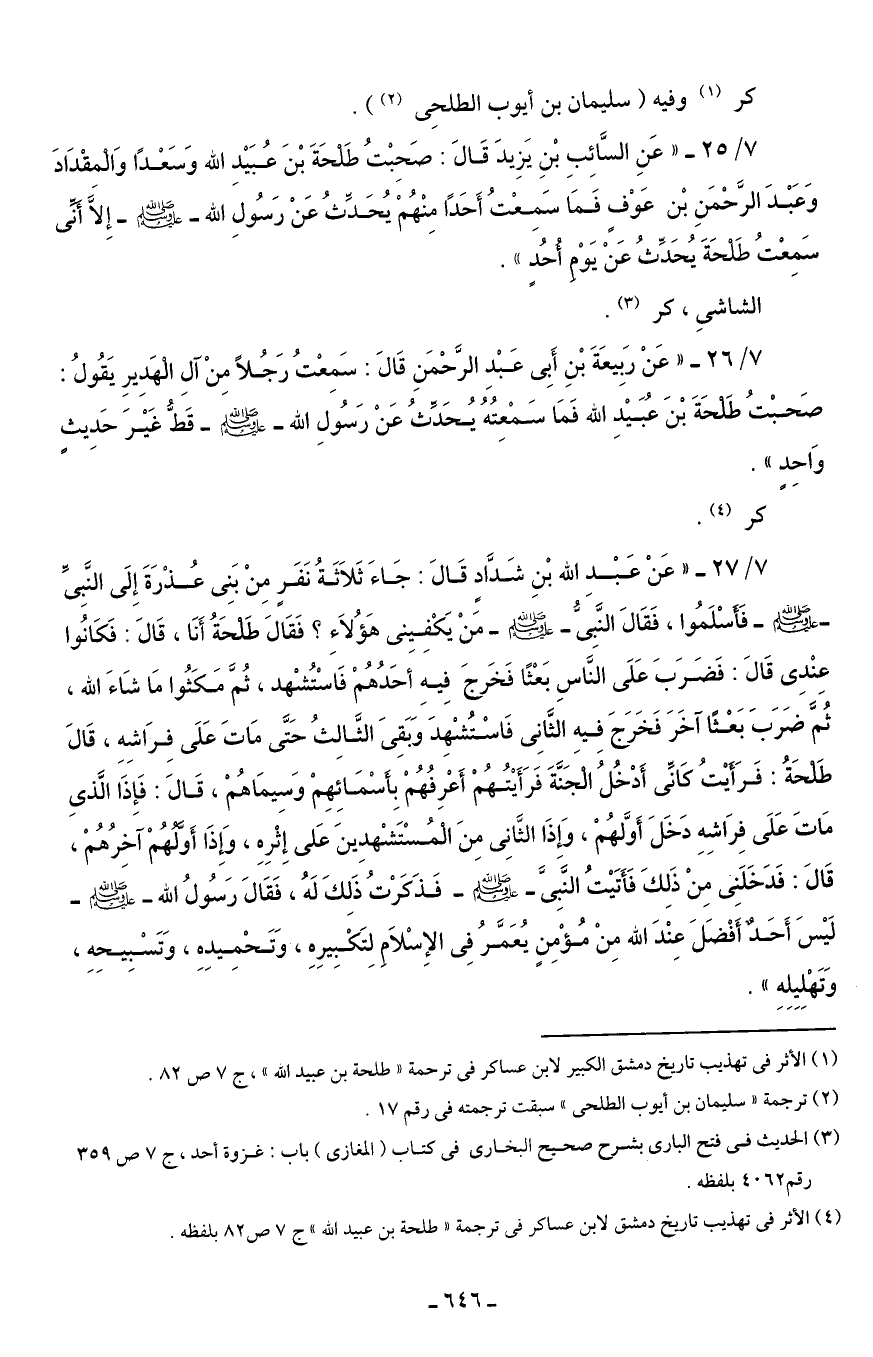 كر (١) وفيه ( سليمان بن أيوب الطلحى (٢) ) .
٢٥/٧ ـ « عَنِ السَّائِبِ بْنِ يَزِيدَ قَـالَ : صَحِبْتُ طَلْحَةَ بْنَ عُـبَيْدِ الله وَسَعْـدًا وَالْمِقْدَادَ
وَعَبْـدَ الرَّحْمَنِ بْنِ عَوْفٍ فَـمَا سَمِـعْتُ أَحَدًا مِنْهُمْ يُحَـدِّثُ عَنْ رَسُولِ الله ـ ﷺ ـ إِلاَّ أَنِّى
سَمِعْتُ طَلْحَةَ يُحَدِّثُ عَنْ يَوْمِ أُحُدٍ » .
الشاشى ، كر (٣) .
٢٦/٧ ـ « عَنْ رَبِيعَةَ بْنِ أَبِى عَبْدِ الرَّحْمَنِ قَالَ : سَمِعْتُ رَجُـلاً مِنْ آلِ الْهَدِيرِ يَقُولُ :
صَحِـبْتُ طَلْحَةَ بْنَ عُبَيْدِ الله فَمَا سَـمِعْتُهُ يُـحَدِّثُ عَنْ رَسُولِ الله ـ ﷺ ـ قَطُّ غَيْـرَ حَدِيثٍ
وَاحِدٍ » .
كر (٤) .
٢٧/٧ ـ « عَنْ عَـبْـدِ الله بْنِ شَـدَّادٍ قَـالَ : جَـاءَ ثَلَاثَـةُ نَفَـرٍ مِنْ بَنِى عُـذْرَةَ إِلَى النَّبِىِّ
ـ ﷺ ـ فَأَسْلَمُوا ، فَقَالَ النَّبِىُّ ـ ﷺ ـ مَنْ يَكْفِـينِى هَؤُلَاءِ ؟ فَقَالَ طَلْحَةُ أَنَا ، قَالَ : فَكَانُوا
عِنْدِى قَالَ : فَضَـرَبَ عَلَى النَّاسِ بَعْثًا فَخَرَجَ فِيـهِ أَحَدُهُمْ فَاسْتُشْهِدَ ، ثُمَّ مَـكَثُوا مَا شَاءَ الله ،
ثُمَّ ضَرَبَ بَعْـثًا آخَرَ فَخَرَجَ فِـيهِ الثَّانِى فَاسْـتُشْهِدَ وَبَقِىَ الثَّـالِثُ حَتَّى مَاتَ عَلَى فِـرَاشِهِ ، قَالَ
طَلْحَةُ : فَـرَأَيْتُ كَأَنِّى أَدْخُلُ الْجَنَّةَ فَرَأَيْتُـهُمْ أَعْرِفُهُمْ بِأَسْمَـائِهِمْ وَسِيمَاهُمْ ، قَـالَ : فَإِذَا الَّذِى
مَاتَ عَلَى فِرَاشِهِ دَخَلَ أَوَّلَهُمْ ، وَإِذَا الثَّانِى مِنَ الْمُـسْتَشْهِدِينَ عَلَى إِثْرِهِ ، وَإِذَا أَوَّلُهُمْ آخِرُهُمْ ،
قَالَ : فَدَخَلَنِى مِنْ ذَلِكَ فَأَتَيْتُ النَّبِىَّ ـ ﷺ ـ فَـذَكَرْتُ ذَلِكَ لَهُ ، فَقَالَ رَسُولُ الله ـ ﷺ ـ
لَيْسَ أَحَـدٌ أَفْضَلَ عِنْدَ الله مِنْ مُـؤْمِنٍ يُعَمَّـرُ فِى الإِسْلَامِ لِتَكْـبِيرِهِ ، وَتَـحْمِيدِهِ ، وَتَسْبِيـحِهِ ،
وَتَهْلِيلِهِ » .
(١) الأثر فى تهذيب تاريخ دمشق الكبير لابن عساكر فى ترجمة « طلحة بن عبيد الله » ، ج ٧ ص ٨٢ .
(٢) ترجمة « سليمان بن أيوب الطلحى » سبقت ترجمته فى رقم ١٧ .
(٣) الحديث فـى فتح البارى بشـرح صحيح البخـارى فى كتـاب ( المغازى ) باب : غـزوة أحد ، ج ٧ ص ٣٥٩
رقم ٤٠٦٢ بلفظه .
(٤) الأثر فى تهذيب تاريخ دمشق لابن عساكر فى ترجمة « طلحة بن عبيد الله » ج ٧ ص ٨٢ بلفظه .
ـ ٦٤٦ ـ